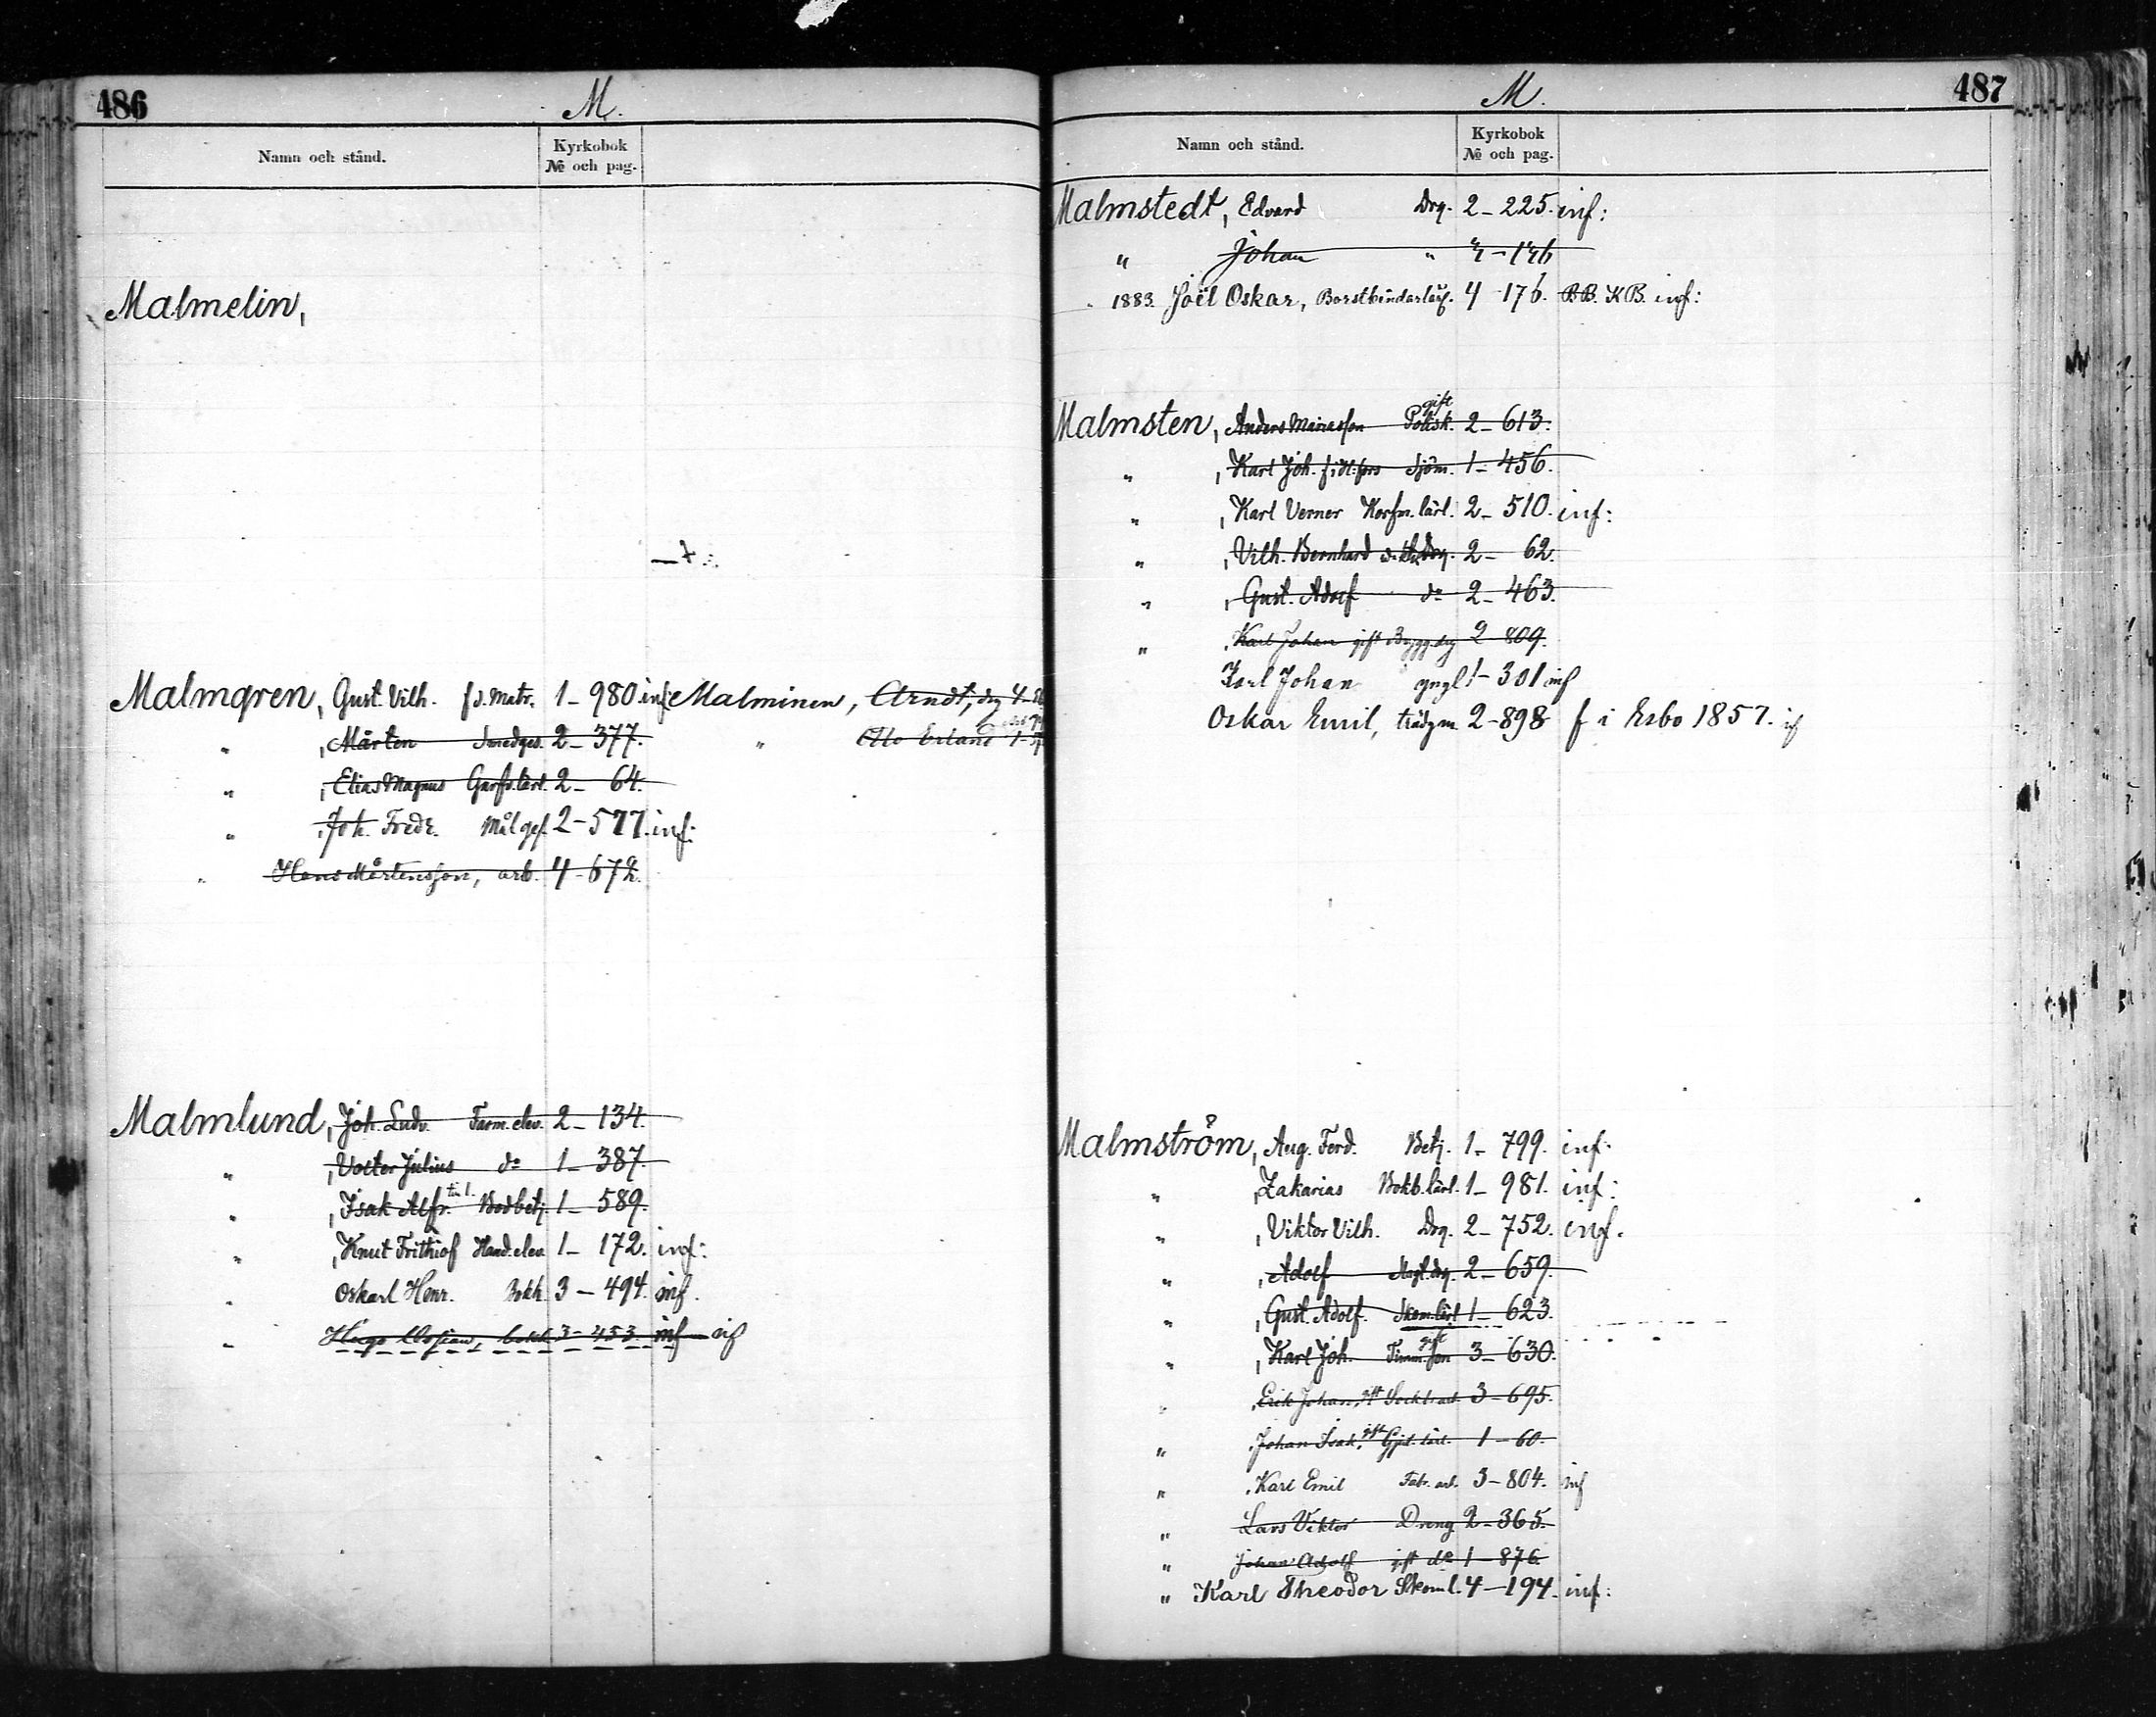 486
M.
Namn och stånd.
Kyrkobok
№ och pag.
Malmelin,
Malmgren, Gust. Vilh. f.d. Matr. 1-980 inf:
" , Mårten Smedges. 2-377.
" , Elias Magnus Garfv.lärl. 2-64.
" , Joh. Fredr. Mål.gef. 2-577. inf:
" Hans Mårtensson, arb. 4-672.
Malminen, Arndt, drg 4-
" Otto Erland 1-
Malmlund, Joh. Ludv. Farm. elev. 2-134.
" , Volter Julius do 1-387.
" , Isak Alfr. Bodbetj. 1-589.
" , Knut Frithiof Hand. elev. 1-172. inf:
" Oskarl Henr. Bokh. 3-494. inf.
" Hugo Ossian, bokh. 3-453. inf inf
487
M.
Namn och stånd.
Kyrkobok
№ och pag.
Malmstedt, Edvard Drg. 2-225. inf:
" Johan " 4-176
" 1883. Joël Oskar, Borstbindarlärl. 4-176. B.B. K.B. inf:
gift
Malmsten, Anders Mariasson Polisk. 2-613.
" , Karl Joh. Sjöm. 1-456.
" , Karl Verner Korfm. lärl. 2-510. inf:
" , Vilh. Bernhard Drg. 2-62.
" , Gust. Adolf do 2-463.
" , Karl Johan gift Brygg.drg 2-809.
Karl Johan yngl. 1-301 inf
Oskar Emil, trädgm. 2-898 f i Esbo 1857. if
Malmström, Aug. Ferd. Betj. 1-799. inf:
" , Zakarias Bokb. lärl. 1-981. inf:
" , Viktor Vilh. Drg. 2-752. inf.
" , Adolf drg. 2-659.
" , Gust. Adolf. Skom. lärl 1-623.
" , Karl Joh. gift Timm. 3-630.
" , Erik Johan, gift 3-695.
" , Johan Isak, gift lärl. 1-60.
" , Karl Emil Fabr. arb. 3-804. inf
" Lars Viktor Dreng 2-365.
" Johan Adolf gift do 1-876.
" Karl Theodor Skoml. 4-194. inf: